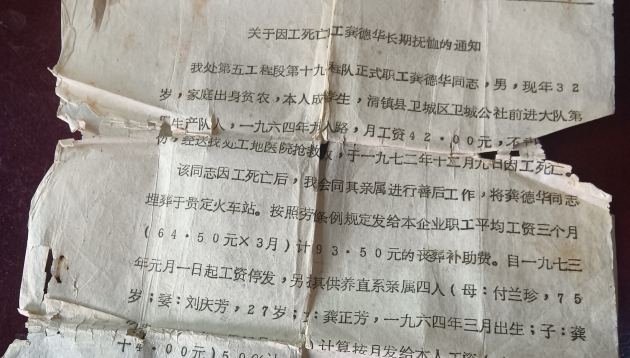 关于因工死亡工龚德华长期抚恤的通知
我处第五工程段第十九程队正式职工龚德华同志，男，现年32
岁，家庭出身贫农，本人成学生，清镇县卫城区卫城公社前进大队第
生产队人，一九六四年入路，月工资42·00元，不
经送我处工地医院抢救，于一九七二年十二月九日因工死亡。
该同志因工死亡后，我会同其亲属进行善后工作，将龚德华同志
埋葬于贵定火车站。按照劳条例规定发给本企业职工平均工资三个月
（64·50元×3月）计93·50元的丧葬补助费。自一九七三
年元月一日起工资停发，另其供养直系亲属四人（母：付兰珍，75
岁；妻：刘庆芳，27岁；女：龚正芳，一九六四年三月出生；子：龚
4·00元）50%计 ）计算按月发给本人工资